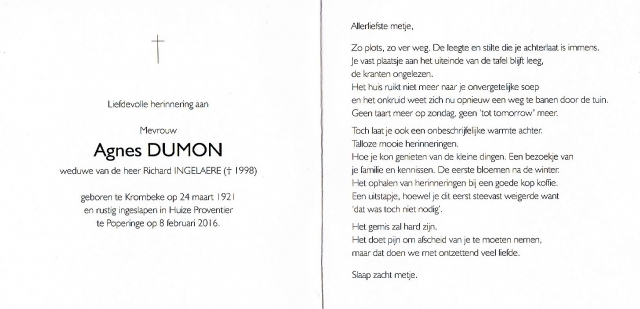 Liefdevolle herinnering aan
Mevrouw
Agnes DUMON
weduwe van de heer Richard INGELAERE († 1998)
geboren te Krombeke op 24 maart 1921
en rustig ingeslapen in Huize Proventier
te Poperinge op 8 februari 2016.
Allerliefste metje,
Zo plots, zo ver weg. De leegte en stilte die je achterlaat is immens.
Je vast plaatsje aan het uiteinde van de tafel blijft leeg,
de kranten ongelezen.
Het huis ruikt niet meer naar je onvergetelijke soep
en het onkruid weet zich nu opnieuw een weg te banen door de tuin.
Geen taart meer op zondag, geen 'tot tomorrow' meer.
Toch laat je ook een onbeschrijfelijke warmte achter.
Talloze mooie herinneringen.
Hoe je kon genieten van de kleine dingen. Een bezoekje van
je familie en kennissen. De eerste bloemen na de winter.
Het ophalen van herinneringen bij een goede kop koffie.
Een uitstapje, hoewel je dit eerst steevast weigerde want
'dat was toch niet nodig'.
Het gemis zal hard zijn.
Het doet pijn om afscheid van je te moeten nemen,
maar dat doen we met ontzettend veel liefde.
Slaap zacht metje.